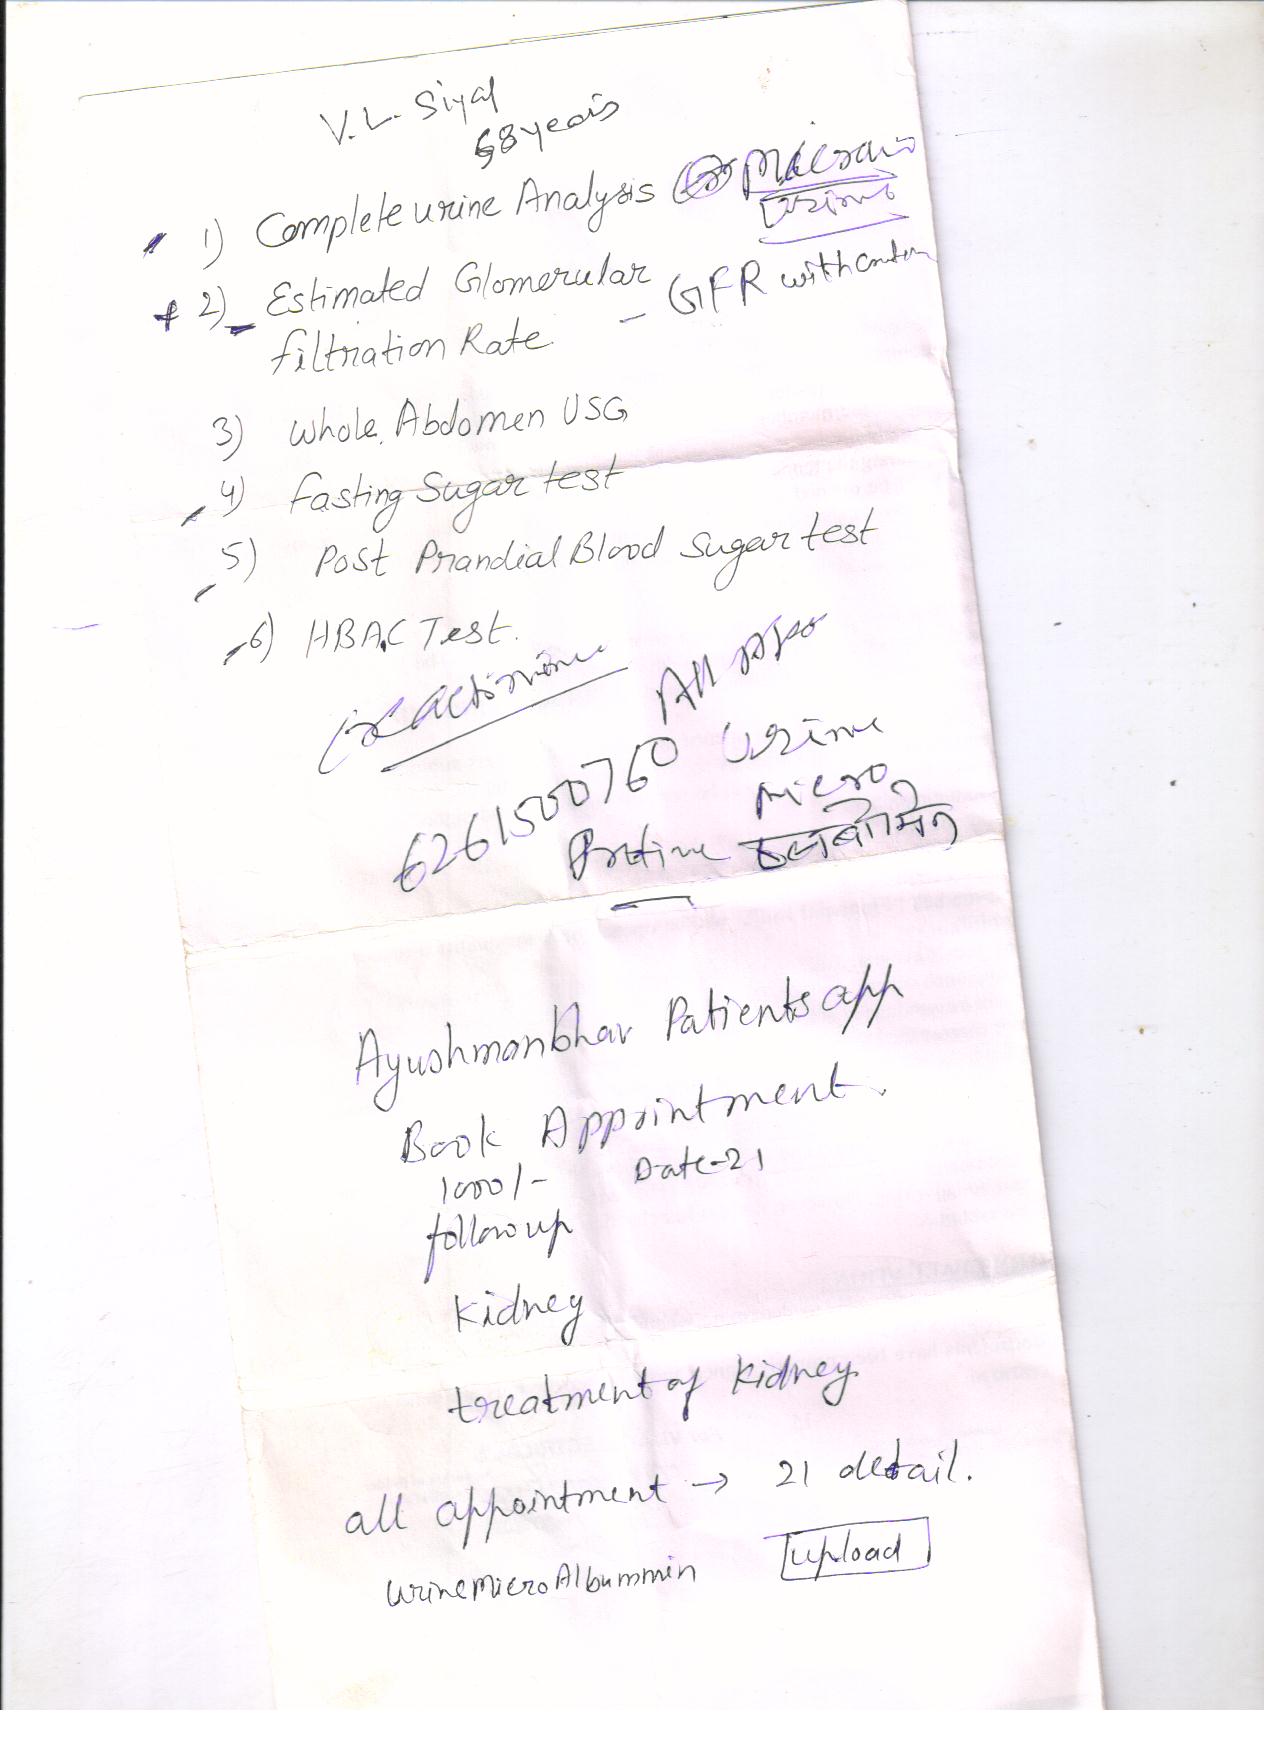 V.L. Siyal
68 years
1) Complete urine Analysis Micro
Urine
2) Estimated Glomerular - GFR with
filtration Rate
3) Whole Abdomen USG
4) fasting Sugar test
5) Post Prandial Blood Sugar test
6) HBA,C Test.
All
6261500760 Urine
Micro
Ayushmanbhav Patients app
Book Appointment.
1000/- Date-21
follow up
Kidney
treatment of Kidney
all appointment → 21 detail.
Urine Micro Albummin upload